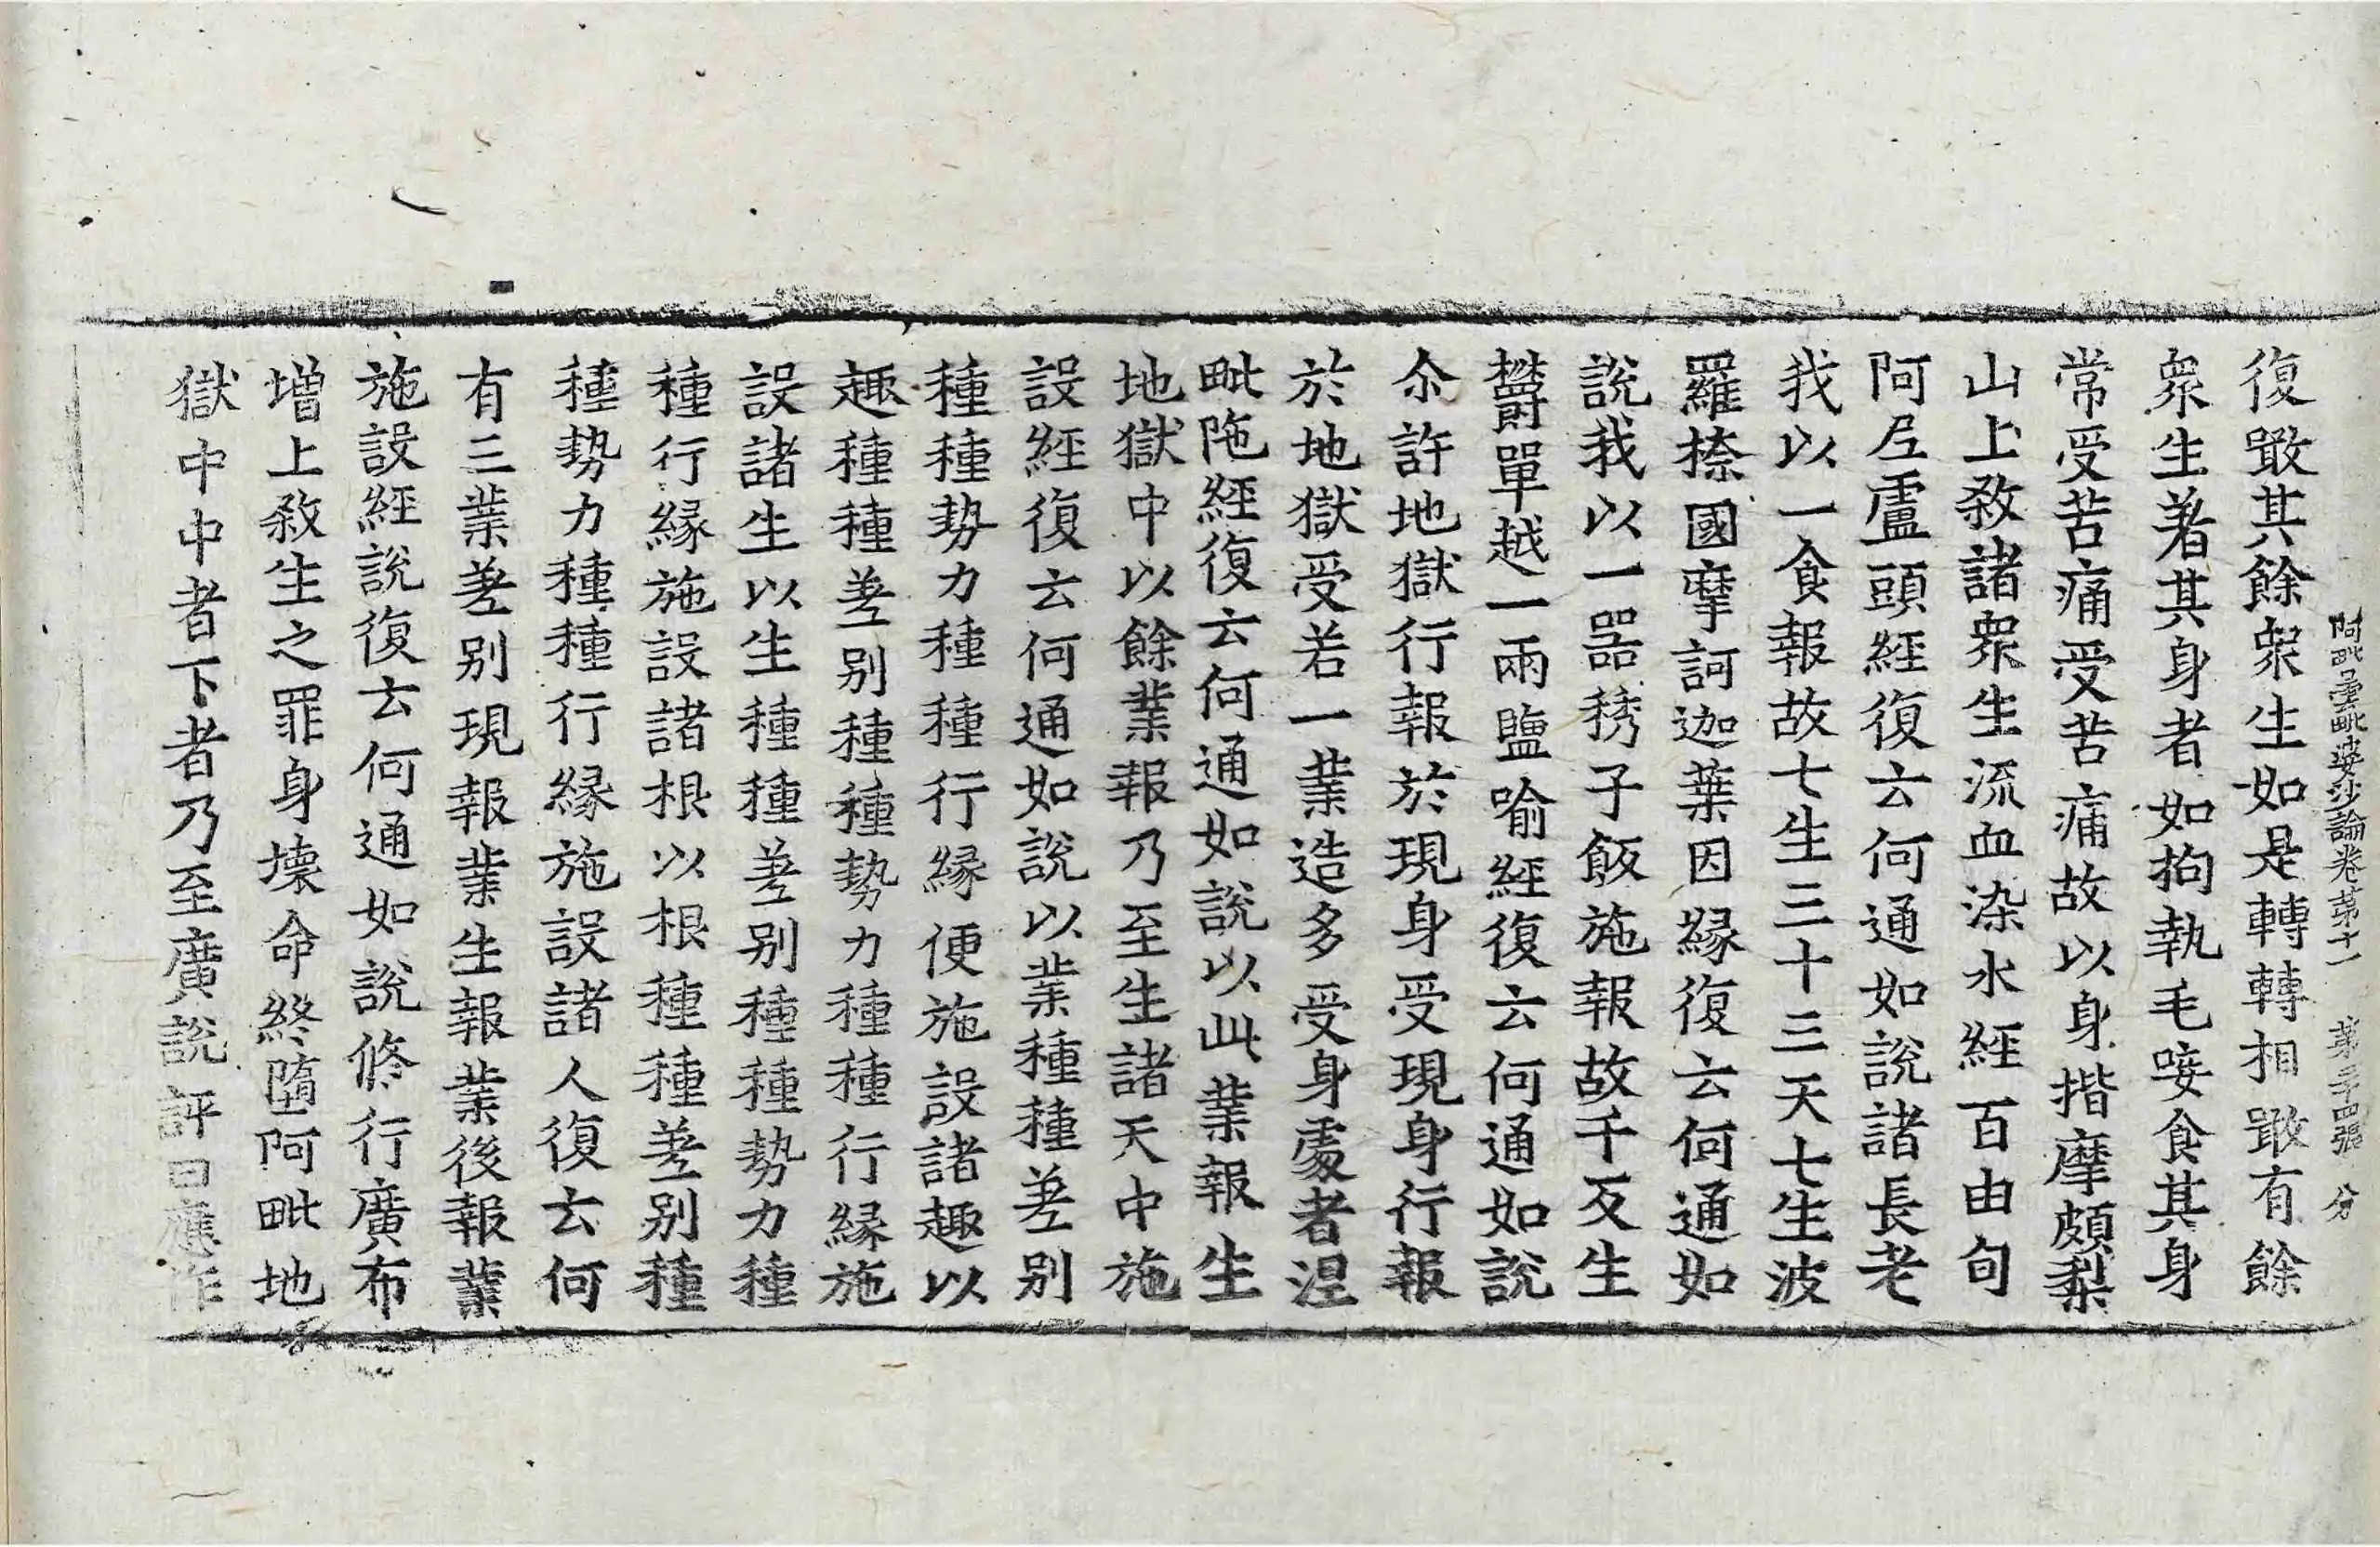 阿毗曇毗婆沙論卷第十一 第二十四張 分
復噉其餘衆生如是轉轉相噉有餘
衆生著其身者如拘執毛唼食其身
常受苦痛受苦痛故以身揩摩頗梨
山上殺諸衆生流血染水經百由旬
阿尼盧頭經復云何通如說諸長老
我以一食報故七生三十三天七生波
羅捺國摩訶迦葉因緣復云何通如
說我以一器稊子飯施報故千反生
欝單越一兩鹽喻經復云何通如說
尒許地獄行報於現身受現身行報
於地獄受若一業造多受身處者涅
毗陁經復云何通如說以此業報生
地獄中以餘業報乃至生諸天中施
設經復云何通如說以業種種差别
種種勢力種種行緣便施設諸趣以
趣種種差别種種勢力種種行緣施
設諸生以生種種差别種種勢力種
種行緣施設諸根以根種種差别種
種勢力種種行緣施設諸人復云何
有三業差别現報業生報業後報業
施設經說復云何通如說修行廣布
增上殺生之罪身壞命終墮阿毗地
獄中中者下者乃至廣說評曰應作